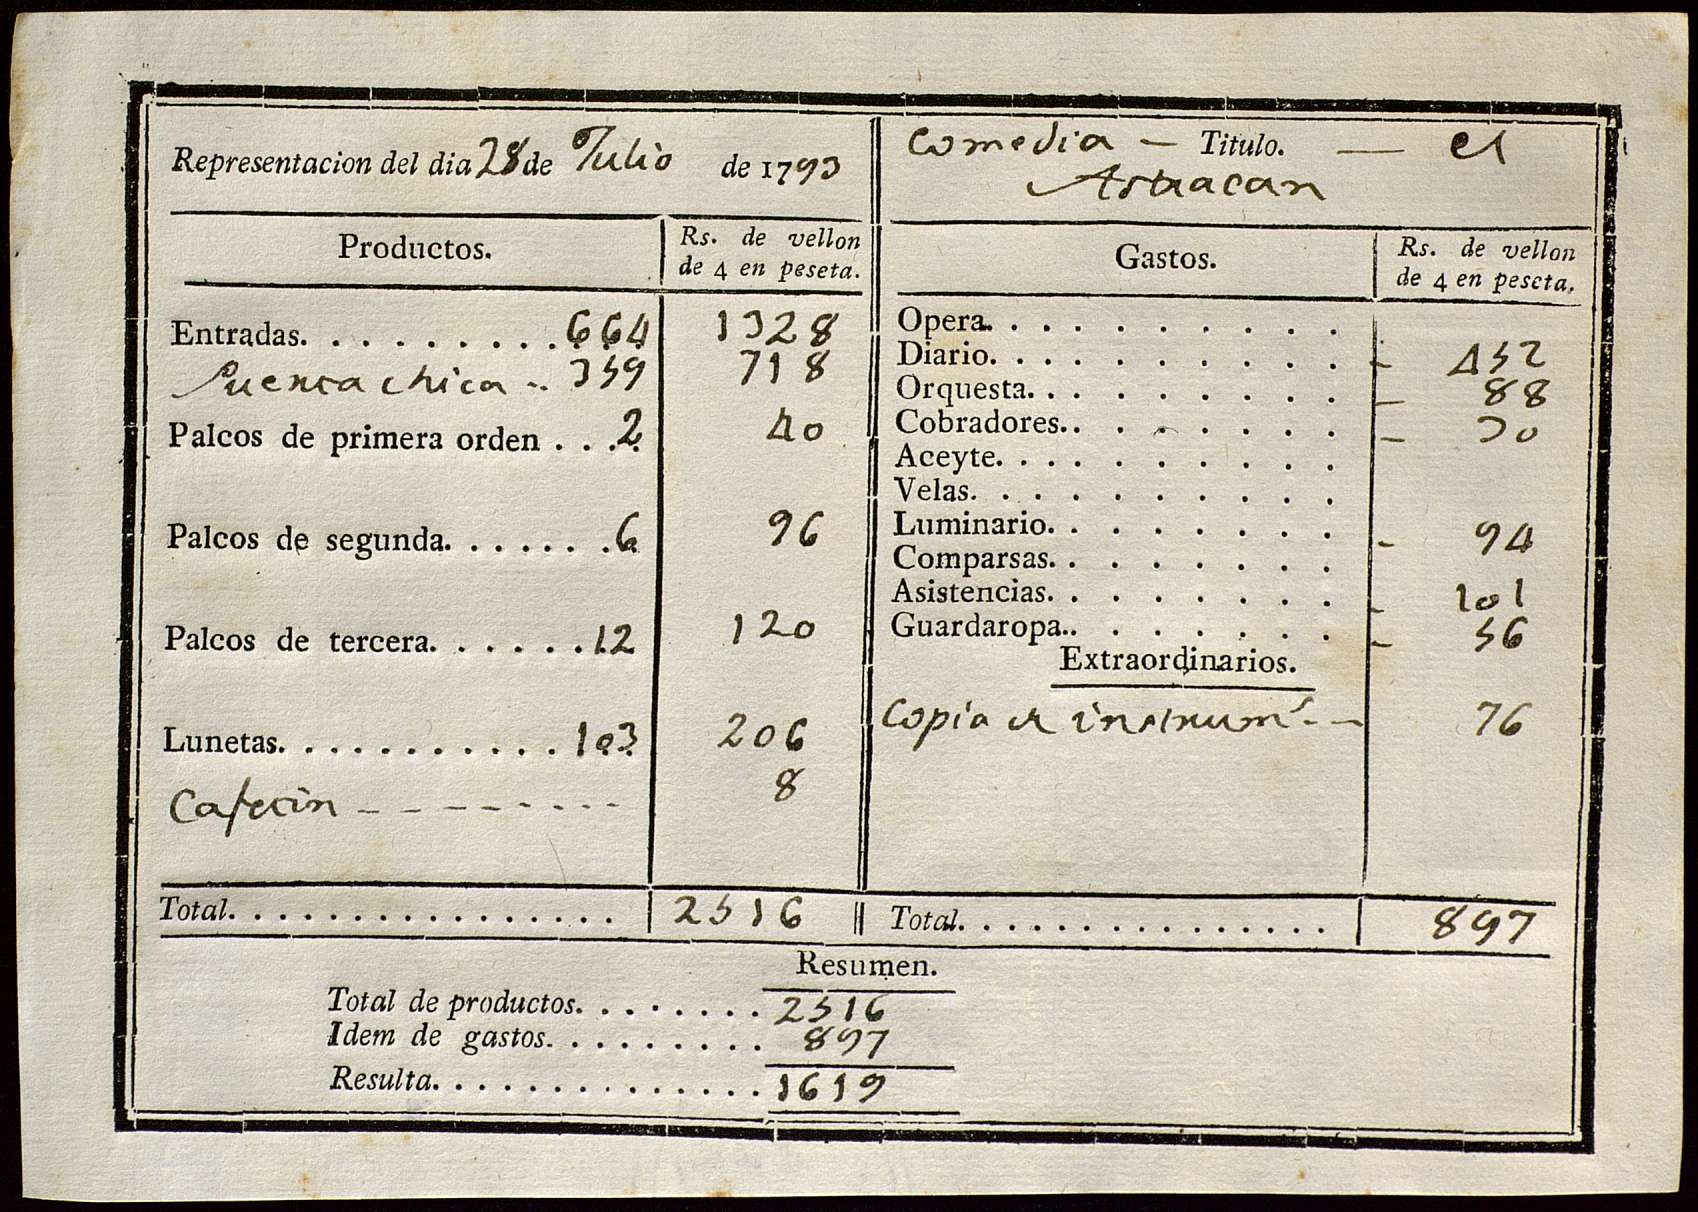 Representacion del dia 28 de Julio de 1793
Comedia — Titulo. — el
Astracan
Productos.
Rs. de vellon
de 4 en peseta.
Entradas. . . . . . . . . . 664 1328
Puerta chica .. 359 718
Palcos de primera orden . . . 2 40
Palcos de segunda. . . . . . . 6 96
Palcos de tercera. . . . . . 12 120
Lunetas. . . . . . . . . . . . 103 206
Cafecin - - - - - - - - 8
Total. . . . . . . . . . . . . . . . . 2516
Gastos.
Rs. de vellon
de 4 en peseta.
Opera. . . . . . . . . .
Diario. . . . . . . . . . - 452
Orquesta. . . . . . . . . - 88
Cobradores. . . . . . . . - 30
Aceyte. . . . . . . . . .
Velas. . . . . . . . . .
Luminario. . . . . . . . - 94
Comparsas. . . . . . . .
Asistencias. . . . . . . . - 101
Guardaropa.. . . . . . . - 56
Extraordinarios.
Copia de instrum.s - - 76
Total. . . . . . . . . . . . . . . . . 897
Resumen.
Total de productos. . . . . . . . 2516
Idem de gastos. . . . . . . . . 897
Resulta. . . . . . . . . . . . . . 1619